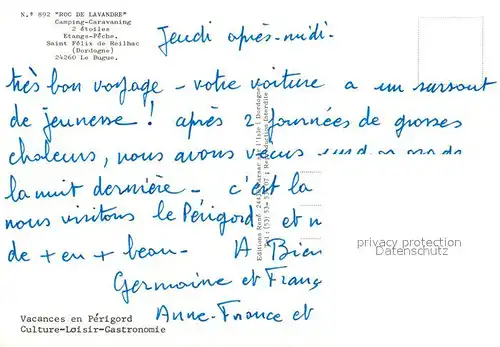 N.° 892 "ROC DE LAVANDRE"
Camping-Caravaning
2 étoiles
Etangs-Pêche.
Saint Félix de Reilhac
(Dordogne)
24260 Le Bugue.
Jeudi après-midi.
très bon voyage - votre voiture a un sursaut
de jeunesse ! après 2 journées de grosses
chaleurs, nous avons
la nuit dernière - c'est la
nous visitons le Périgord et
de + en + beau - A Bien
Germaine et Franç
Anne-France et
Vacances en Périgord
Culture-Loisir-Gastronomie
Editions René
Reproduction Interdite
privacy protection
DELCAMPE